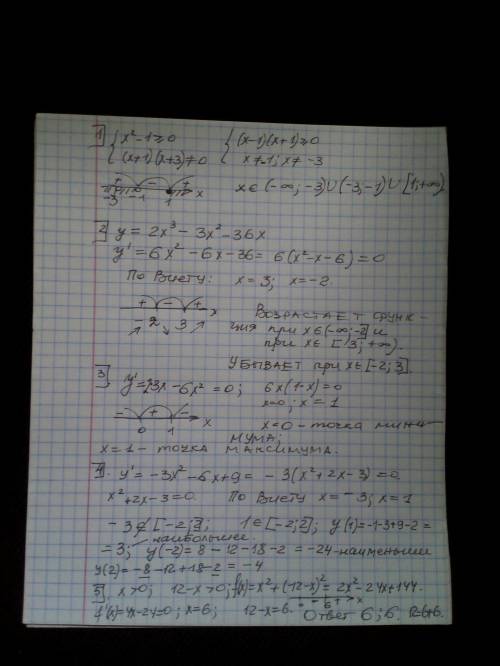 1 { x²-1≥0 { (x-1)(x+1)≥0
(x+1)(x+3)≠0 x≠-1; x≠-3
+ - + x
-3 -1 1 x∈(-∞;-3)∪(-3;-1)∪[1;+∞)
2 y=2x³-3x²-36x
y'=6x²-6x-36=6(x²-x-6)=0
По Виету: x=3; x=-2
+ - + x
-2 3
Возрастает функ-
ция при x∈(-∞;-2] и
при x∈[3;+∞).
Убывает при x∈[-2;3]
3 6x(1-x)=0
x=0; x=1
- + - x
0 1 x=0-точка мини-
мума;
x=1-точка максимума.
4 y'=-3x²-6x+9=-3(x²+2x-3)=0
x²+2x-3=0. По Виету x=-3; x=1
-3∉[-2;2]; 1∈[-2;2]; y(1)=-1-3+9-2=
наибольшее
=3; y(-2)=8-12-18-2=-24-наименьшее
y(2)=-8-12+18-2=-4
5 x>0; 12-x>0; f(x)=x²+(12-x)²=2x²-24x+144.
- 6 + x
x=6; 12-x=6. Ответ 6;6. 12=6+6.